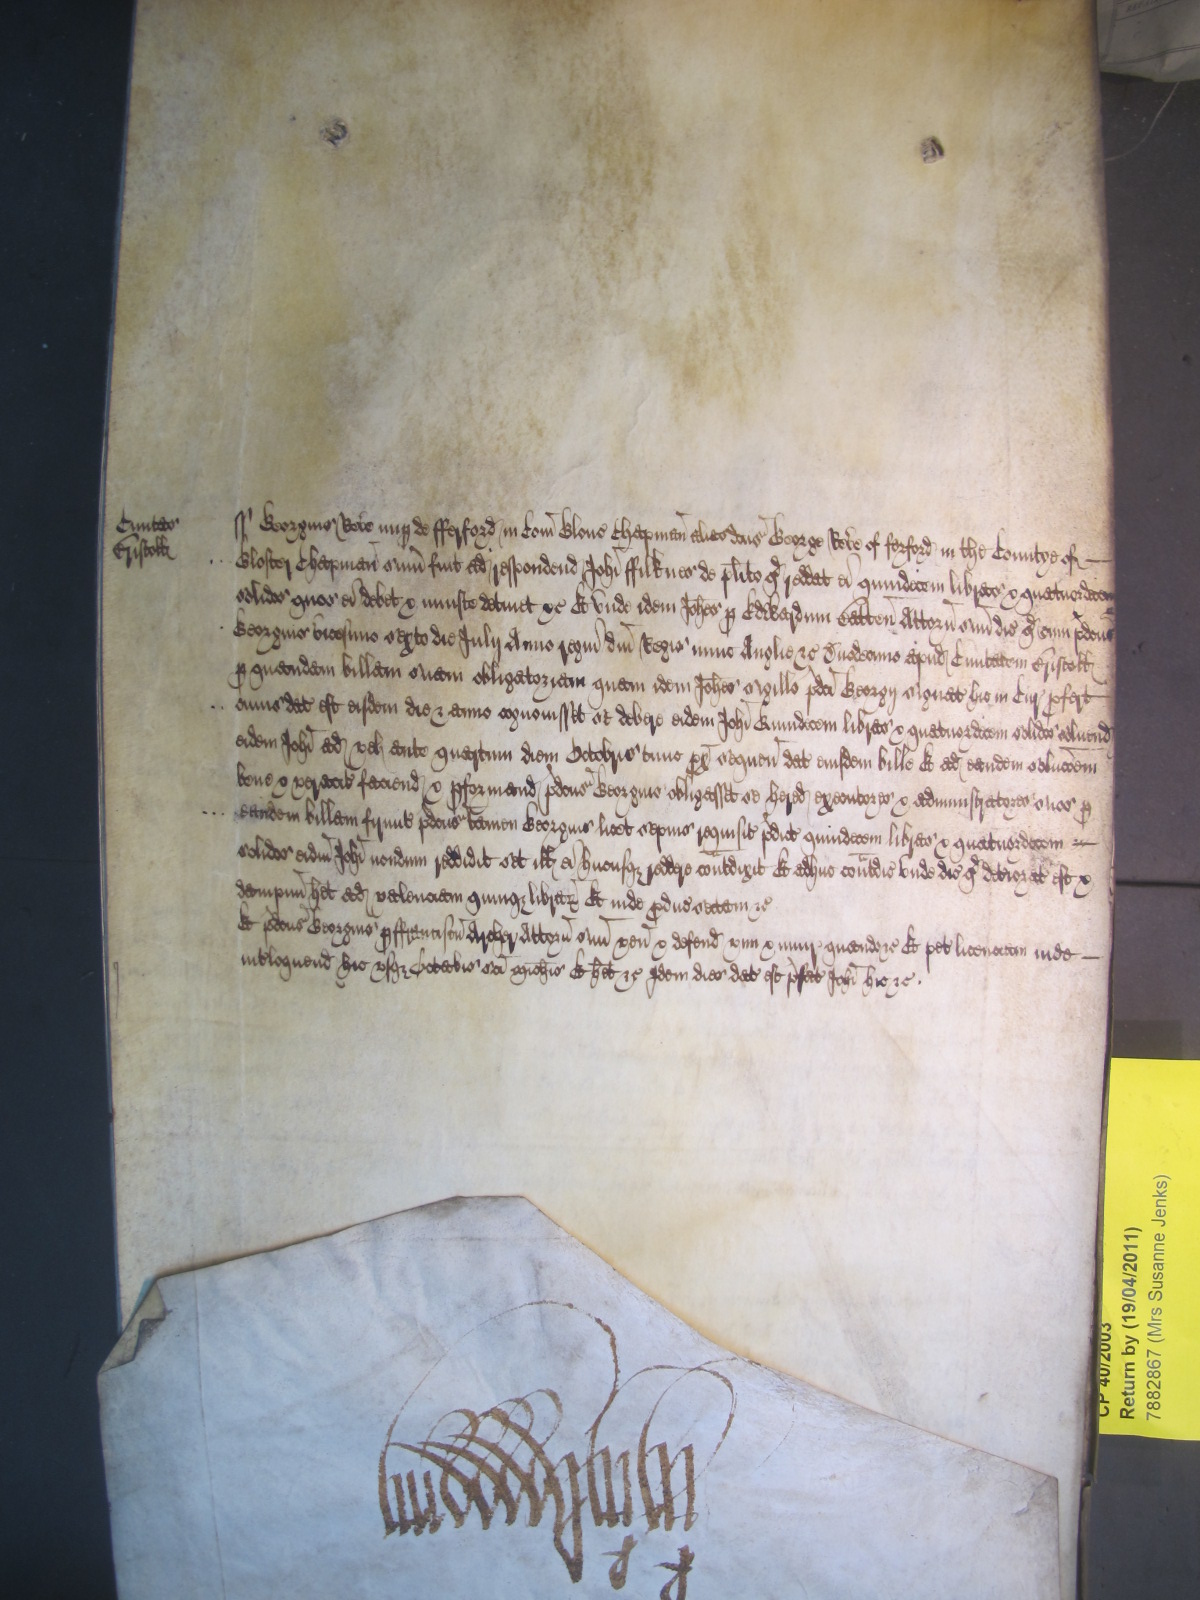 Civitas
Bristoll
ss Georgius Rove nup de ffeyford in Com Glouc Chapman alias dcus George Rove of feyford in the Countye of
Gloster Chapman sum fuit ad respondend Johi ffilknes de plito qd reddat ei quindecim libras & quatuordecim
solidos quos ei debet & iniuste detinet &c Et unde idem Johes p Edwardum Attorn suu dic qd cum pdcus
Georgius vicesimo sexto die Julii Anno regni dni Regis nunc Anglie &c duodecimo apud Civitatem Bristoll
p quandam billam suam obligatoriam quam idem Johes sigillo pdci Georgii signat hic in Cur pfert
cuius dat est eisdem die & anno cognovisset se debere eidem Johi quindecim libras & quatuordecim solidos solvend
eidem Johi ad vel ante quartum diem Octobris tunc px sequen dat eiusdem bille Et ad eandem soluconem
bene & veraciter faciend & pformand pdcus Georgius obligasset se hered executores & administratores suos p
eandem billam firmit pdcus tamen Georgius licet sepius requisit pdict quindecim libras & quatuordecim
solidos eidm Johi nondum reddidit set ill ei hucusq reddere contdixit Et adhuc contdic unde dic qd deteriorat est &
dampnu het ad valenciam quinq librar Et inde pduc sectam &c
Et pdcus Georgius p ffranciscu Archer Attorn suu ven & defend vim & iniur quando &c Et pet licenciam inde
intloquend hic usq Octabis sci Michis Et het &c Idem dies dat est pfat Johi hic &c
CP 40/2003
Return by (19/04/2011)
7882867 (Mrs Susanne Jenks)